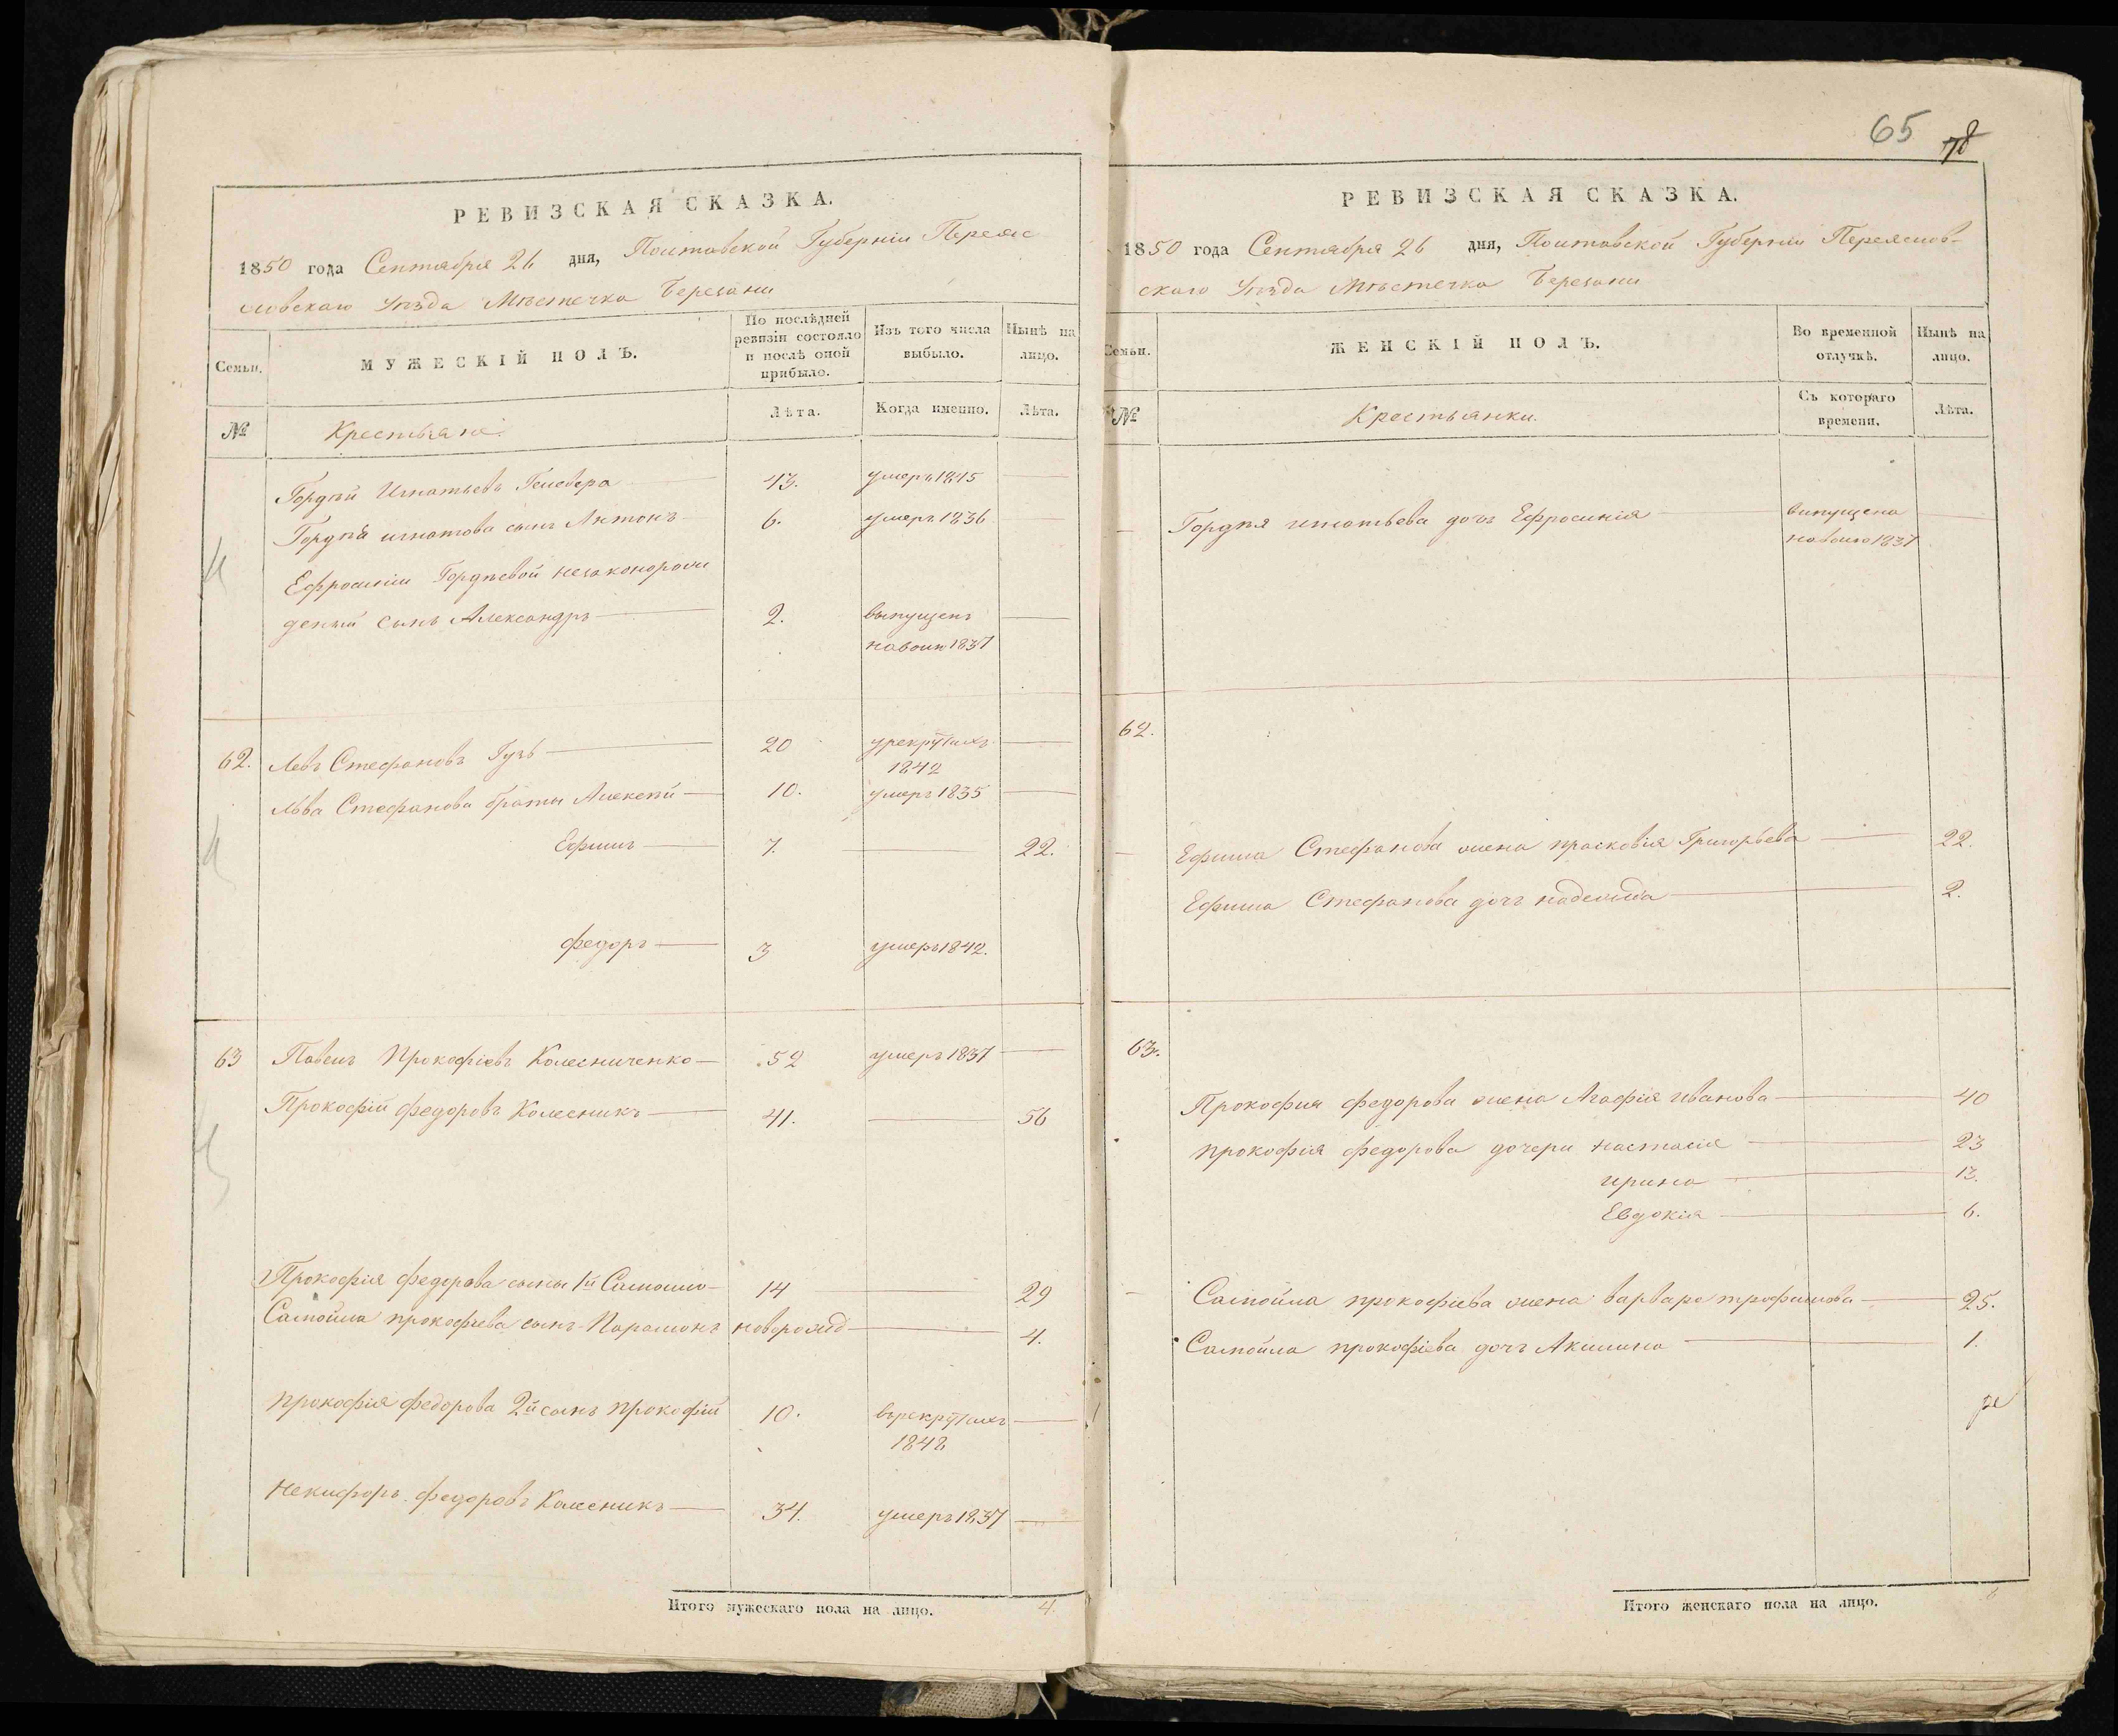 РЕВИЗСКАЯ СКАЗКА.
1850 года Сентября 26 дня, Полтавской Губерніи Переяс
ловскаго Уѣзда Мѣстечка Березани
Семьи.
МУЖЕСКІЙ ПОЛЪ.
По послѣдней
ревизіи состояло
и послѣ оной
прибыло.
Изъ того числа
выбыло.
Нынѣ на
лицо.
№
Крестьяне.
Лѣта.
Когда именно.
Лѣта.
Гордѣй Игнатьевъ 43. умеръ 1845
Гордѣя игнатова сынъ Антонъ 6. умеръ 1836
Ефросиніи Гордѣевой незаконорож
деный сынъ Александръ 2. выпущенъ
наволю 1837
62. Левъ Стефановъ Гузь 20 урекрутахъ
1842
Льва Стефанова браты Алексѣй 10. умеръ 1835
Ефимъ 7. 22.
федоръ 3 умеръ 1842.
63 Павелъ Прокофіевъ Колесниченко 52 умеръ 1837
Прокофій федоровъ Колесникъ 41. 56
Прокофія федорова сыны 1й Самойло 14 29
Самойла прокофьева сынъ Парамонъ новорожд 4.
прокофія федорова 2й сынъ прокофій 10. врекрутахъ
1848
Некифоръ федоровъ Колесникъ 34. умеръ 1837
Итого мужескаго пола на лицо. 4.
65 78
РЕВИЗСКАЯ СКАЗКА.
1850 года Сентября 26 дня, Полтавской Губерніи Переяслов-
скаго Уѣзда Мѣстечка Березани
Семьи.
ЖЕНСКІЙ ПОЛЪ.
Во временной
отлучкѣ.
Нынѣ на
лицо.
№
Крестьянки.
Съ котораго
времени.
Лѣта.
Гордѣя игнатьева дочь Ефросинія выпущена
наволю 1837
62.
Ефима Стефанова жена прасковія Григорьева 22.
Ефима Стефанова дочь надежда 2.
63.
Прокофия федорова жена Агафія иванова 40
прокофія федорова дочери настасія 23
ирина 13.
Евдокія 6.
Самойла прокофіева жена варвара трофимова 25.
Самойла прокофіева дочь Акилина 1.
Итого женскаго пола на лицо.